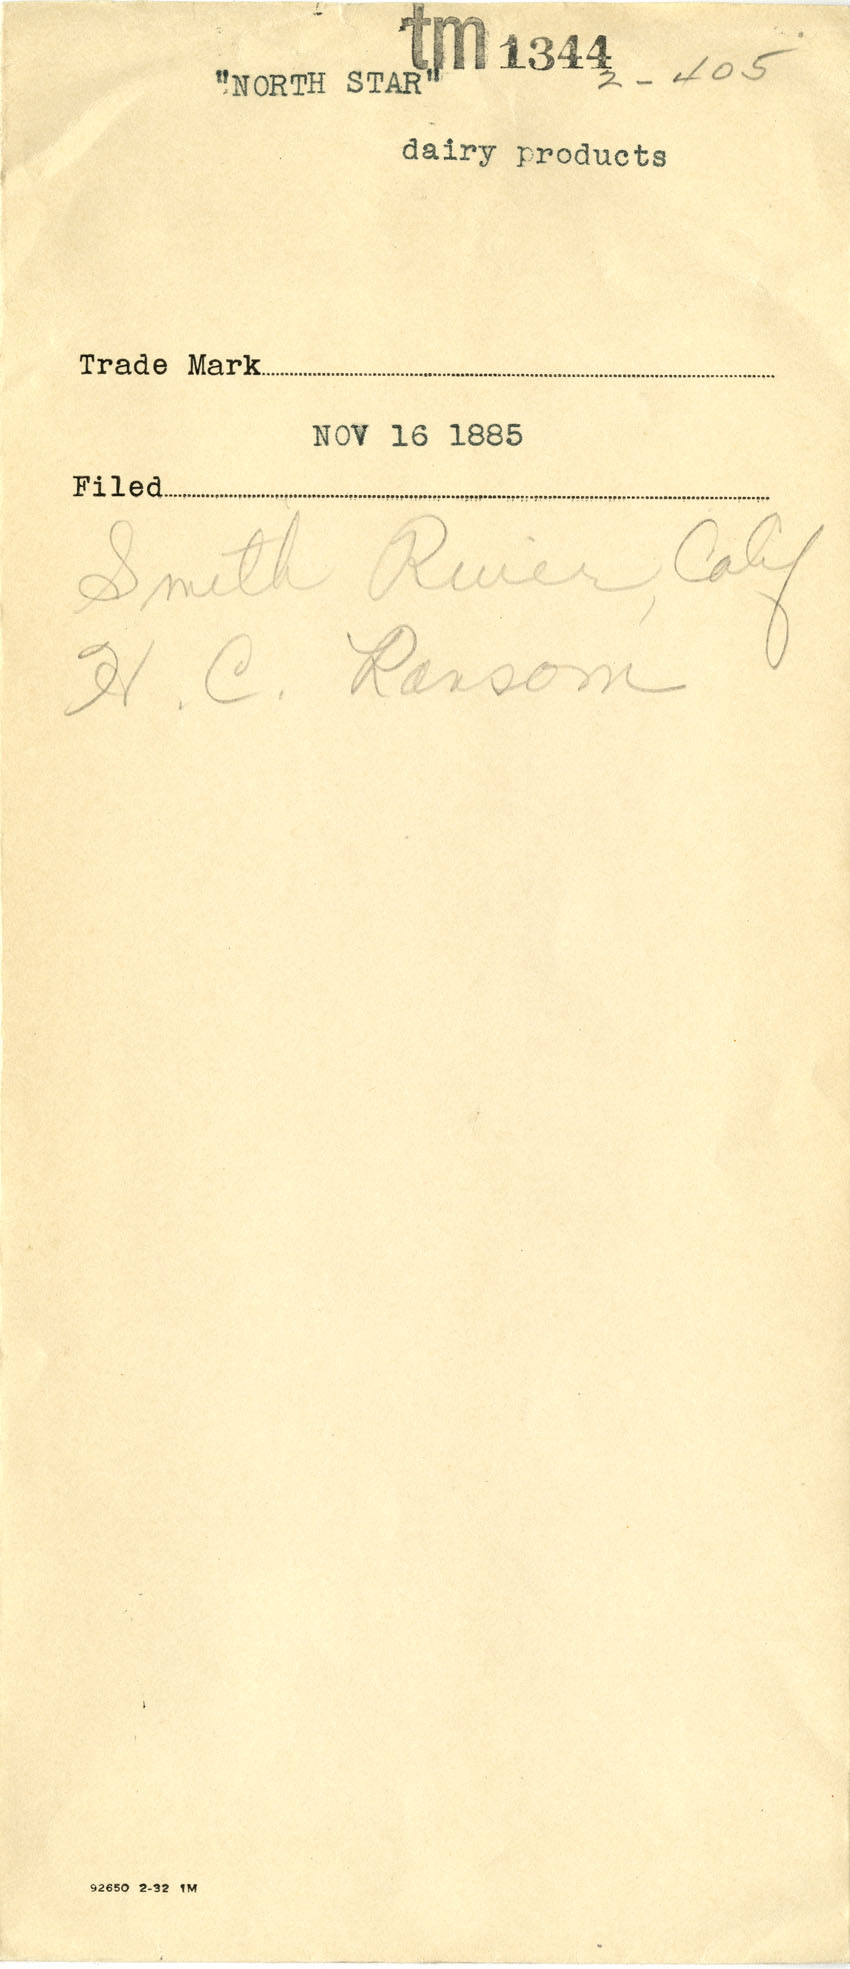 tm 1344
"NORTH STAR" 2-405
dairy products
Trade Mark
NOV 16 1885
Filed
Smith River, Calif
H. C. Ransom
92650 2-32 1M